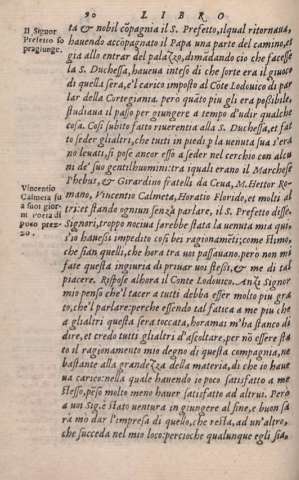 90 LIBRO
Il Signor
Prefetto so
pragiunge.
ta & nobil cõpagnia il S. Prefetto, ilqual ritornaua,
hauendo accõpagnato il Papa una parte del camino, et
gia allo entrar del palazzo, dimãdando cio che facesse
la S. Duchessa, haueua inteso di che sorte era il giuoco
di quella sera, e'l carico imposto al Cõte Lodouico di par
lar della Cortegiania. però quãto piu gli era possibile,
studiaua il passo per giungere a tempo d'udir qualche
cosa. Cosi subito fatto riuerentia alla S. Duchessa, et fat
to seder gli altri, che tutti in piedi p la uenuta sua s'era
no leuati, si pose ancor esso a seder nel cerchio con alcu
ni de' suoi gentilhuomini: tra iquali erano il Marchese
Phebus, & Girardino fratelli da Ceua, M. Hettor Ro-
mano, Vincentio Calmeta, Horatio Florido, et molti al
tri: et stando ognun senza parlare, il S. Prefetto disse.
Signori, troppo nociua sarebbe stata la uenuta mia qui,
s'io hauessi impedito cosi bei ragionamẽti; come stimo,
che sian quelli, che hora tra uoi passauano. pero non mi
fate questa ingiuria di priuar uoi stessi, & me di tal
piacere. Rispose alhora il Conte Lodouico. Anzi Signor
mio penso che'l tacer a tutti debba esser molto piu gra
to, che'l parlare: perche essendo tal fatica a me piu che
a gli altri questa sera toccata, horamai m'ha stanco di
dire, et credo tutti gli altri d'ascoltare, per nõ essere sta
to il ragionamento mio degno di questa compagnia, ne
bastante alla grandezza della materia, di che io haue
ua carico: nella quale hauendo io poco satisfatto a me
stesso, pẽso molto meno hauer satisfatto ad altrui. Però
a uoi Sig. è stato uentura in giungere al fine, e buon sa
rà mo dar l'impresa di quello, che resta, ad un'altro,
che succeda nel mio loco: percioche qualunque egli sia,
Vincentio
Calmeta fu
a suoi gior
ni Poeta di
poco prez-
zo.